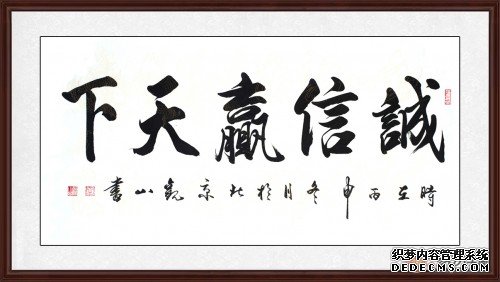 誠信贏天下
時在丙申冬月於北京觀山書
织梦内容管理系统
DEDECMS.COM